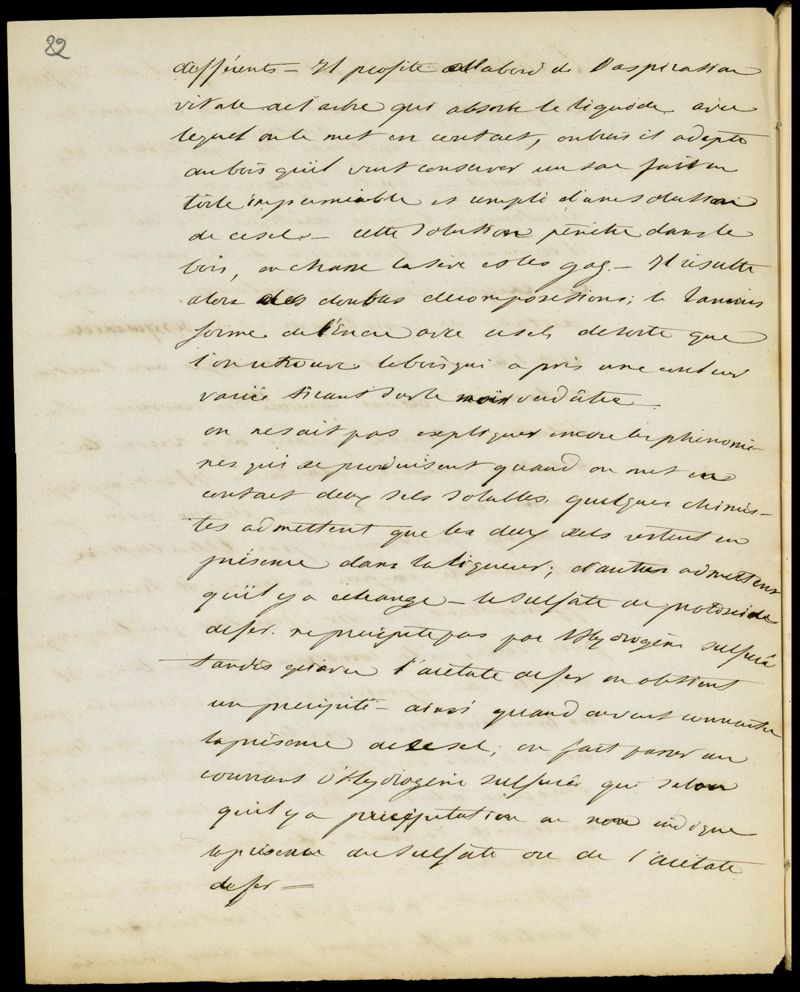 82
différents — Il profite d'abord de l'aspiration
vitale de l'arbre qui absorbe le liquide avec
lequel on le met en contact, ou bien il adapte
au bois qu'il veut conserver un sac fait en
toile imperméable et rempli d'une solution
de ce sel. — cette solution pénètre dans le
bois, en chasse la sève et les gaz. — Il résulte
alors des doubles décompositions; le Tannin
forme de l'Encre avec ce sel de sorte que
l'on retrouve le bois qui a pris une couleur
variée tirant sur le noir verdâtre.
on ne sait pas expliquer encore les phénomè-
nes qui se produisent quand on met en
contact deux sels solubles. quelques chimis-
tes admettent que les deux sels restent en
présence dans la liqueur; d'autres admettent
qu'il y a échange — le sulfate de protoxide
de fer ne précipite pas par l'Hydrogène sulfuré
tandis qu'avec l'acétate de fer on obtient
un précipité — ainsi quand on veut connaitre
la présence de ce sel; on fait passer un
courrant d'Hydrogène sulfuré qui selon
qu'il y a précipitation ou non indique
la présence du sulfate ou de l'acétate
de fer —